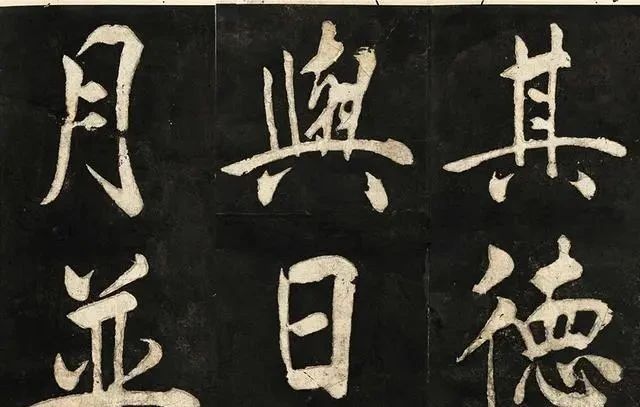 其德
與日
月並